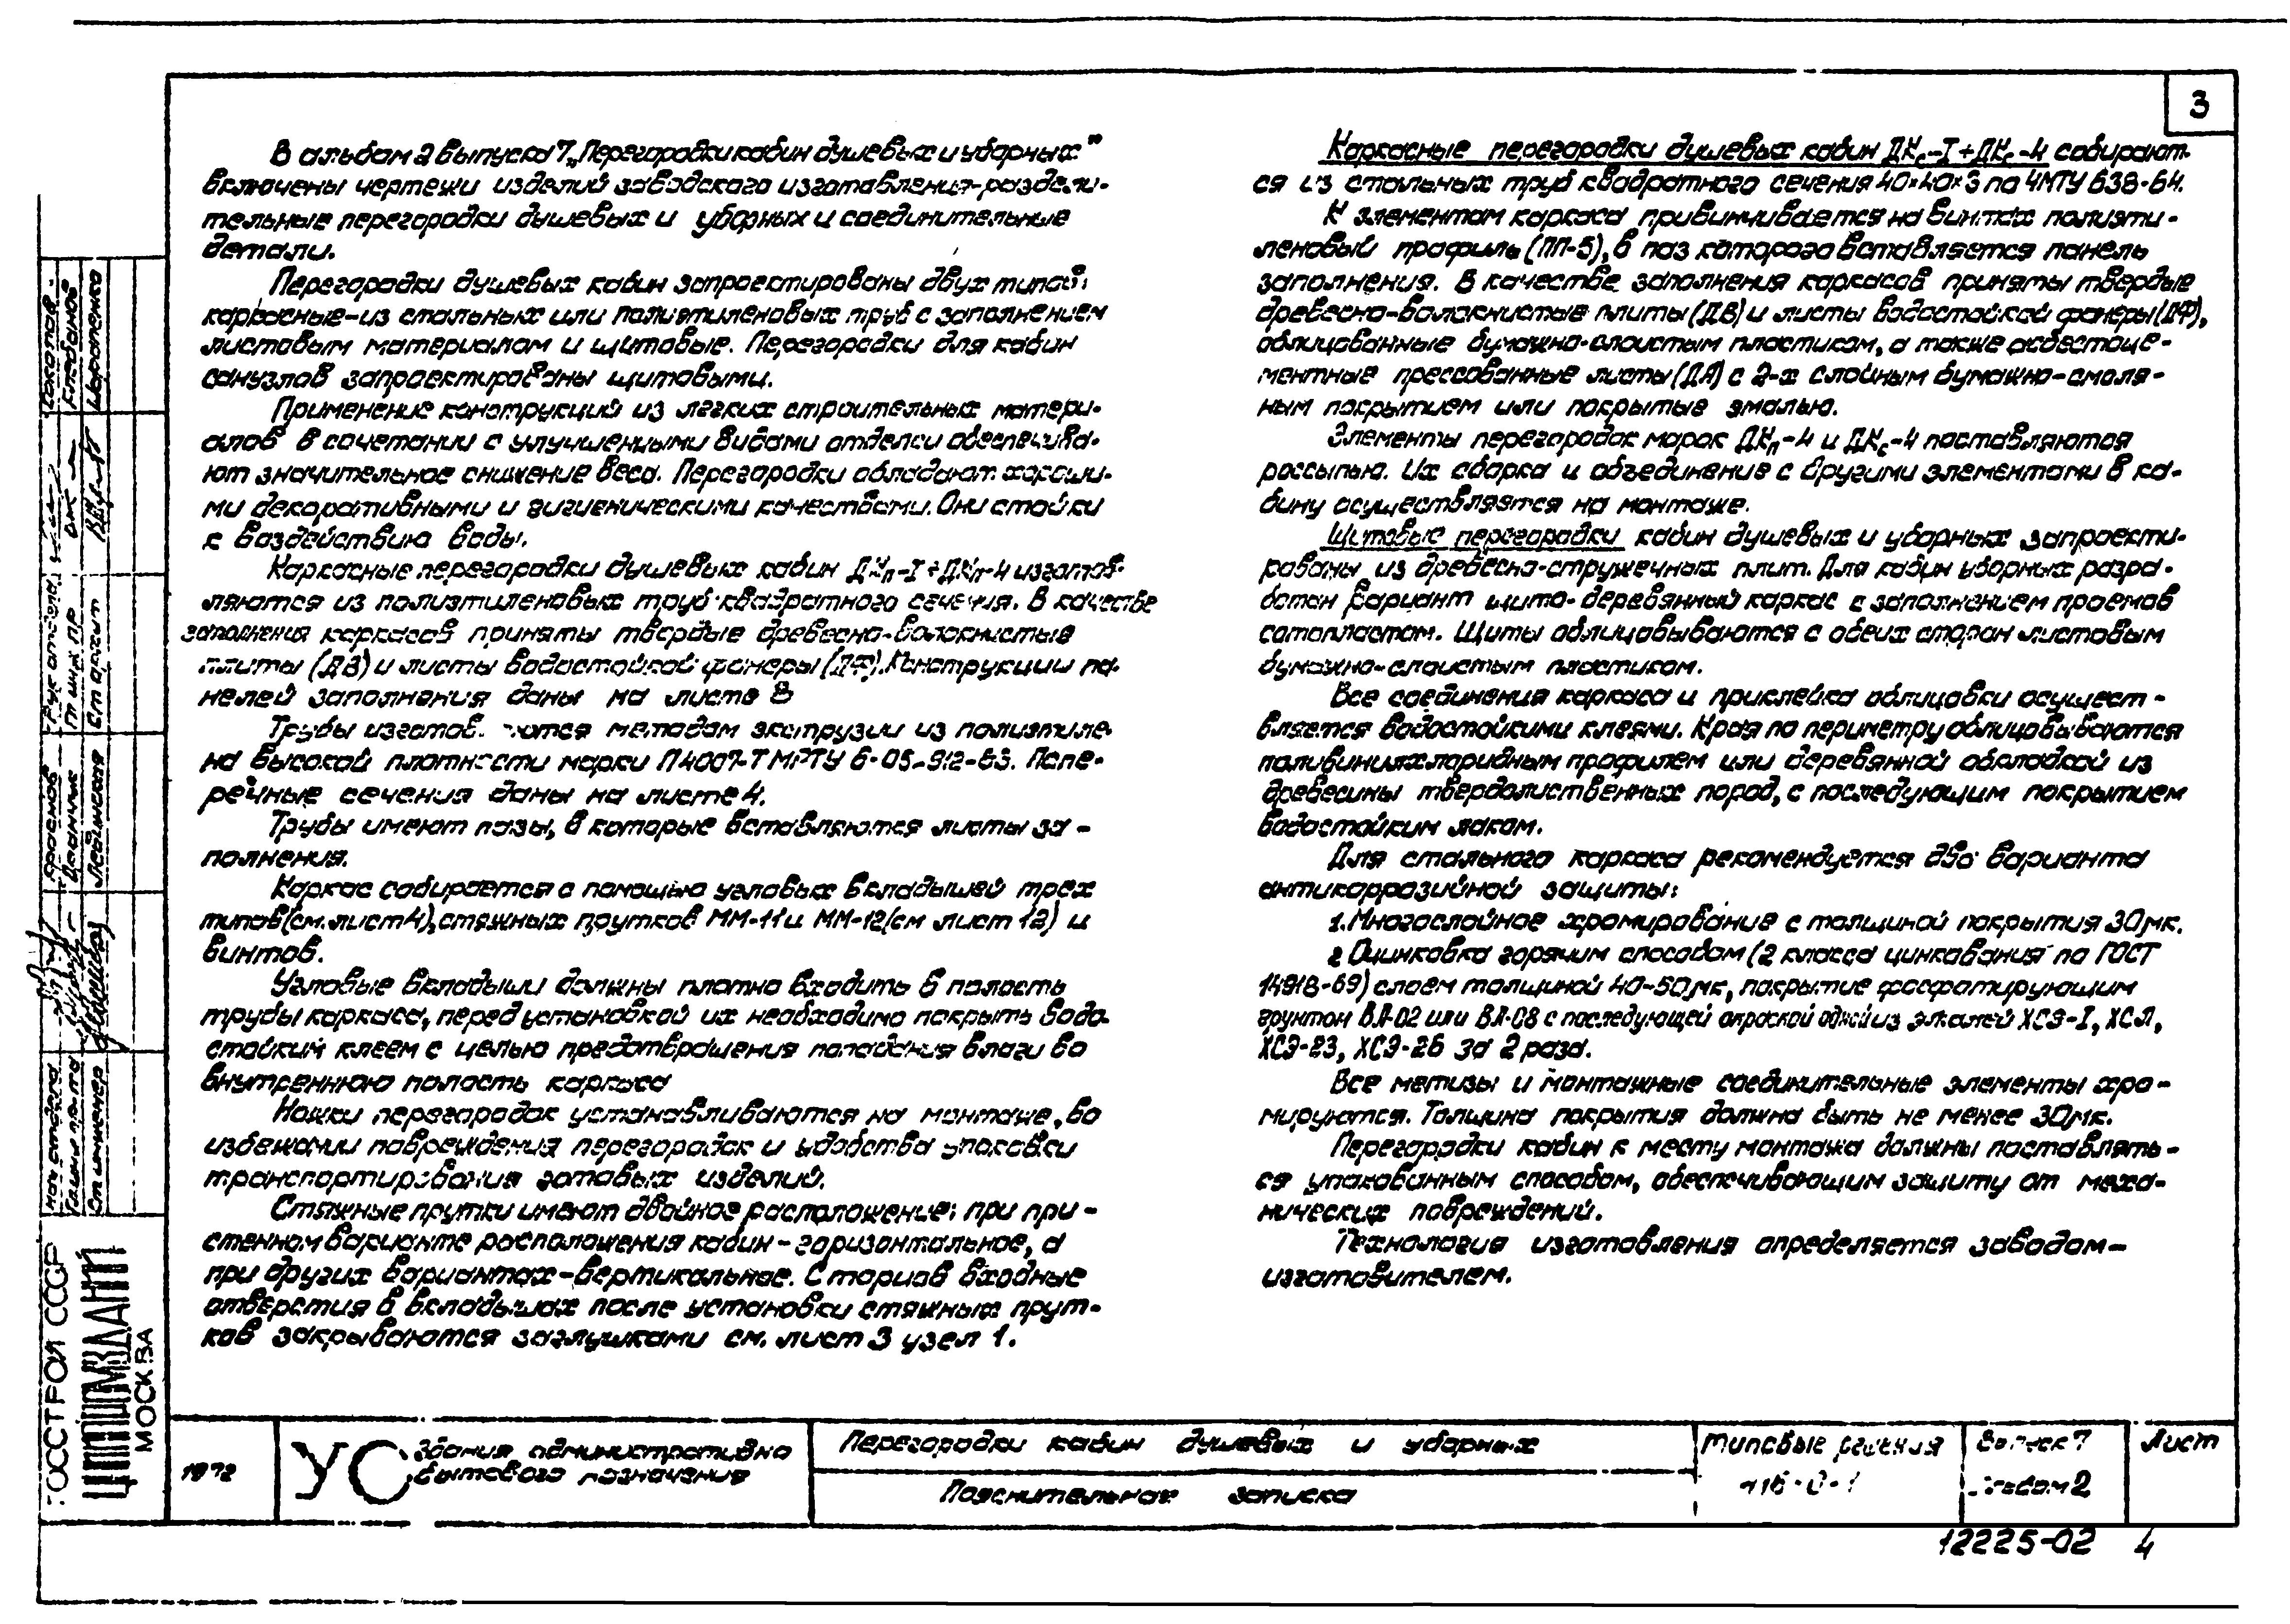 3
В альбом 2 выпуска 7 „Перегородки кабин душевых и уборных"
включены чертежи изделий заводского изготовления-раздели-
тельные перегородки душевых и уборных и соединительные
детали.
Перегородки душевых кабин запроектированы двух типов:
каркасные-из стальных или полиэтиленовых труб с заполнением
листовым материалом и щитовые. Перегородки для кабин
санузлов запроектированы щитовыми.
Применение конструкций из легких строительных матери-
алов в сочетании с улучшенными видами отделки обеспечива-
ют значительное снижение веса. Перегородки обладают хороши-
ми декоративными и гигиеническими качествами. Они стойки
к воздействию воды.
Каркасные перегородки душевых кабин ДКп-I÷ДКп-4 изготов-
ляются из полиэтиленовых труб квадратного сечения. В качестве
заполнения каркасов приняты твердые древесно-волокнистые
плиты (ДВ) и листы водостойкой фанеры (ДФ). Конструкции па-
нелей заполнения даны на листе 8
Трубы изготов. ляются методом экструзии из полиэтиле-
на высокой плотности марки П4007-Т МРТУ 6-05-912-63. Попе-
речные сечения даны на листе 4.
Трубы имеют пазы, в которые вставляются листы за-
полнения.
Каркас собирается с помощью угловых вкладышей трех
типов (см. лист 4), стяжных прутков ММ-11 и ММ-12 (см лист 12) и
винтов.
Угловые вкладыши должны плотно входить в полость
трубы каркаса, перед установкой их необходимо покрыть водо-
стойким клеем с целью предотвращения попадания влаги во
внутреннюю полость каркаса
Ножки перегородок устанавливаются на монтаже, во
избежании повреждения перегородок и удобства упаковки
транспортирования готовых изделий.
Стяжные прутки имеют двойное расположение: при при-
стенном варианте расположения кабин-горизонтальное, а
при других вариантах-вертикальное. С торцов входные
отверстия в вкладышах после установки стяжных прут-
ков закрываются заглушками см. лист 3 узел 1.
Каркасные перегородки душевых кабин ДКс-I÷ДКс-4 собирают-
ся из стальных труб квадратного сечения 40×40×3 по ЧМТУ 638-64.
К элементам каркаса привинчивается на винтах полиэти-
леновый профиль (ПП-5), в паз которого вставляется панель
заполнения. В качестве заполнения каркасов приняты твердые
древесно-волокнистые плиты (ДВ) и листы водостойкой фанеры (ДФ),
облицованные бумажно-слоистым пластиком, а также асбестоце-
ментные прессованные листы (ДА) с 2-х слойным бумажно-смоля-
ным покрытием или покрытые эмалью.
Элементы перегородок марок ДКп-4 и ДКс-4 поставляются
россыпью. Их сборка и объединение с другими элементами в ка-
бину осуществляется на монтаже.
Щитовые перегородки кабин душевых и уборных запроекти-
рованы из древесно-стружечных плит. Для кабин уборных разра-
ботан вариант щита-деревянный каркас с заполнением проемов
сотопластом. Щиты облицовываются с обеих сторон листовым
бумажно-слоистым пластиком.
Все соединения каркаса и приклейка облицовки осущест-
вляется водостойкими клеями. Края по периметру облицовываются
поливинилхлоридным профилем или деревянной обкладкой из
древесины твердолиственных пород, с последующим покрытием
водостойким лаком.
Для стального каркаса рекомендуется два варианта
антикоррозийной защиты:
1. Многослойное хромирование с толщиной покрытия 30мк.
2 Оцинковка горячим способом (2 класса цинкования по ГОСТ
14918-69) слоем толщиной 40-50мк, покрытие фосфатирующим
грунтом ВЛ-02 или ВЛ-08 с последующей окраской одной из эмалей ХСЭ-I, ХСЛ,
ХСЭ-23, ХСЭ-26 за 2 раза.
Все метизы и монтажные соединительные элементы хро-
мируются. Толщина покрытия должна быть не менее 30мк.
Перегородки кабин к месту монтажа должны поставлять-
ся упакованным способом, обеспечивающим защиту от меха-
нических повреждений.
Технология изготовления определяется заводом-
изготовителем.
ГОССТРОЙ СССР
ЦНИИПРОМЗДАНИЙ
МОСКВА
Нач отдела
Гл инж пр-та
Ст инженер
Рук отдела
Гл инж пр
Ст архит
Левинская
Соколов
Глебанов
1972
УС
Здания административно
бытового назначения
Перегородки кабин душевых и уборных
Пояснительная записка
Типовые решения
416-0-1
Выпуск 7
Альбом 2
Лист
12225-02 4